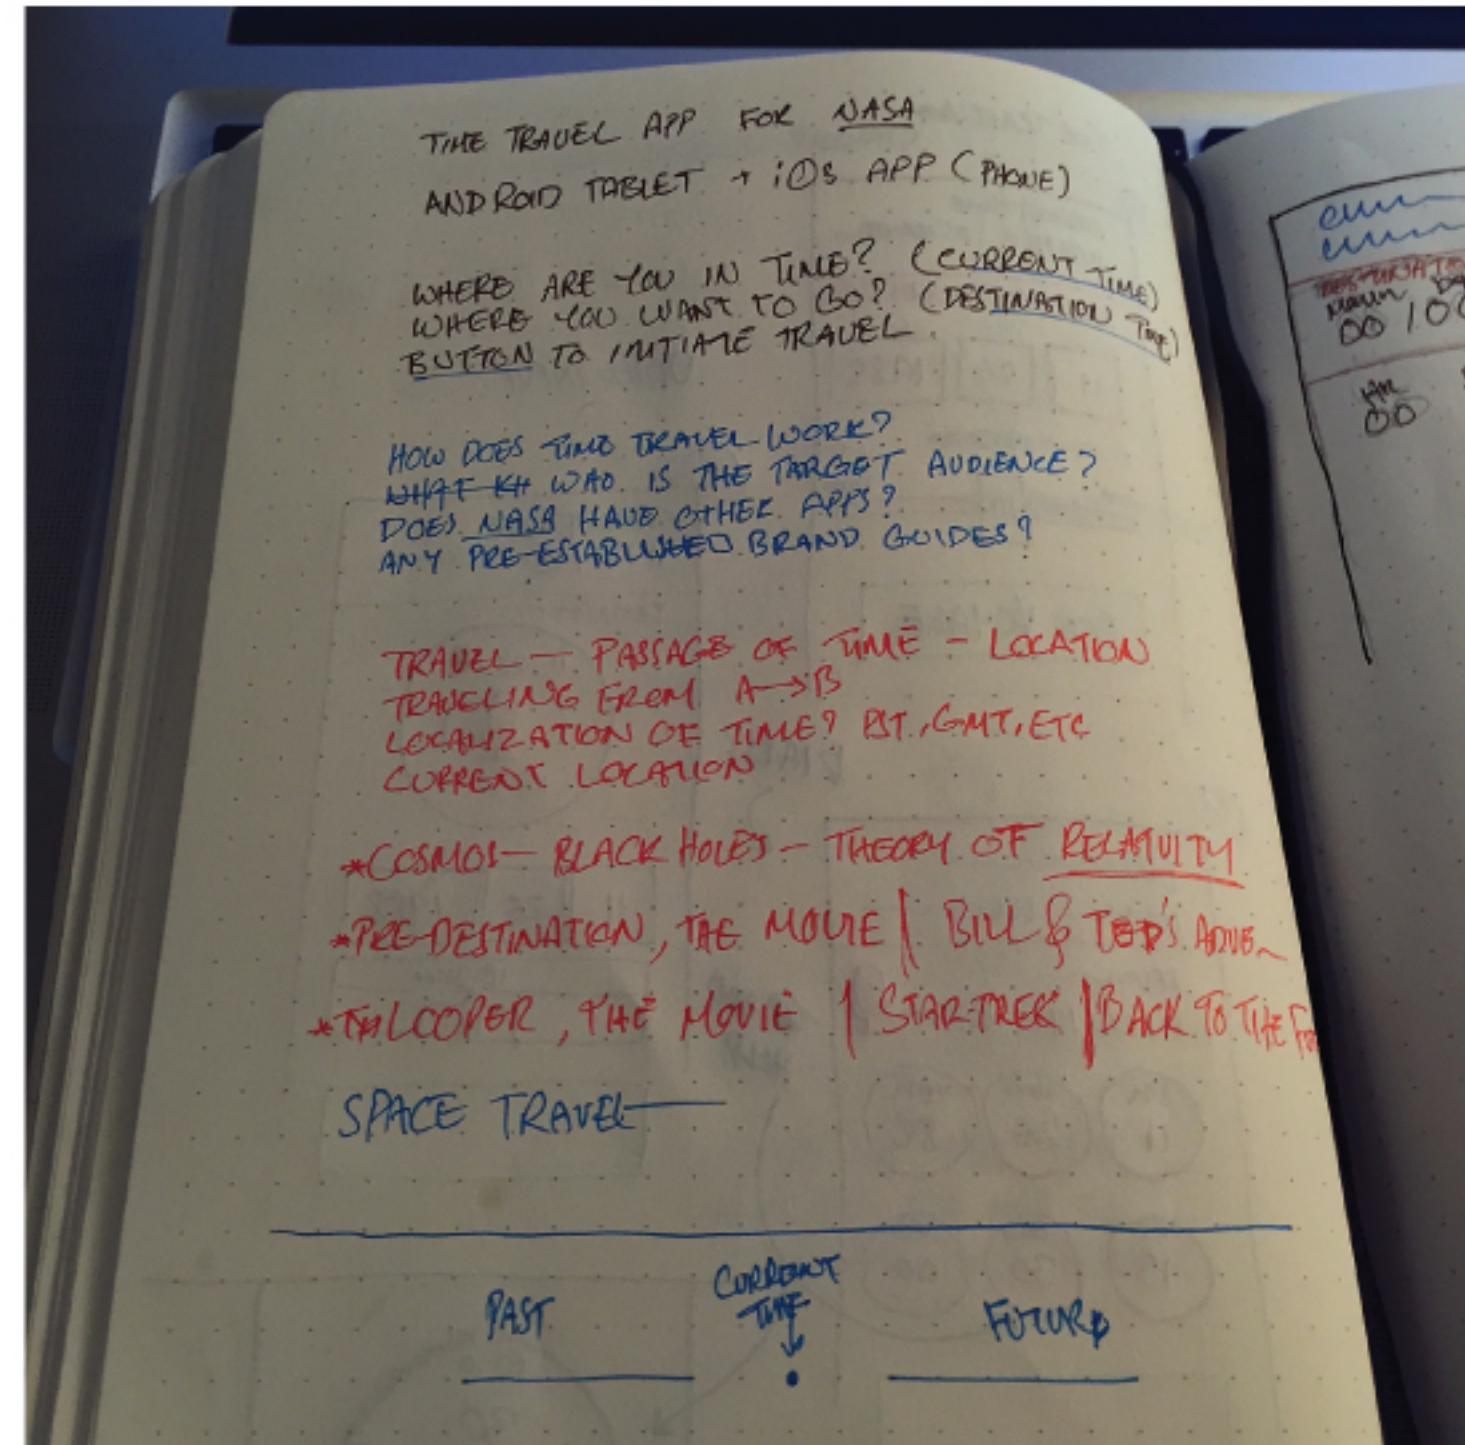 TIME TRAVEL APP FOR NASA
ANDROID TABLET + iOS APP (PHONE)
WHERE ARE YOU IN TIME? (CURRENT TIME)
WHERE YOU WANT TO GO? (DESTINATION TIME)
BUTTON TO INITIATE TRAVEL
HOW DOES TIME TRAVEL WORK?
WHO IS THE TARGET AUDIENCE?
DOES NASA HAVE OTHER APPS?
ANY PRE-ESTABLISHED BRAND GUIDES?
TRAVEL — PASSAGE OF TIME — LOCATION
TRAVELING FROM A→B
LOCALIZATION OF TIME? PST, GMT, ETC
CURRENT LOCATION
*COSMOS — BLACK HOLES — THEORY OF RELATIVITY
*PRE-DESTINATION, THE MOVIE | BILL & TED'S ADVE
*LOOPER, THE MOVIE | STAR TREK | BACK TO THE
SPACE TRAVEL—
CURRENT
TIME
PAST
FUTURE
00 / 00
HR
00